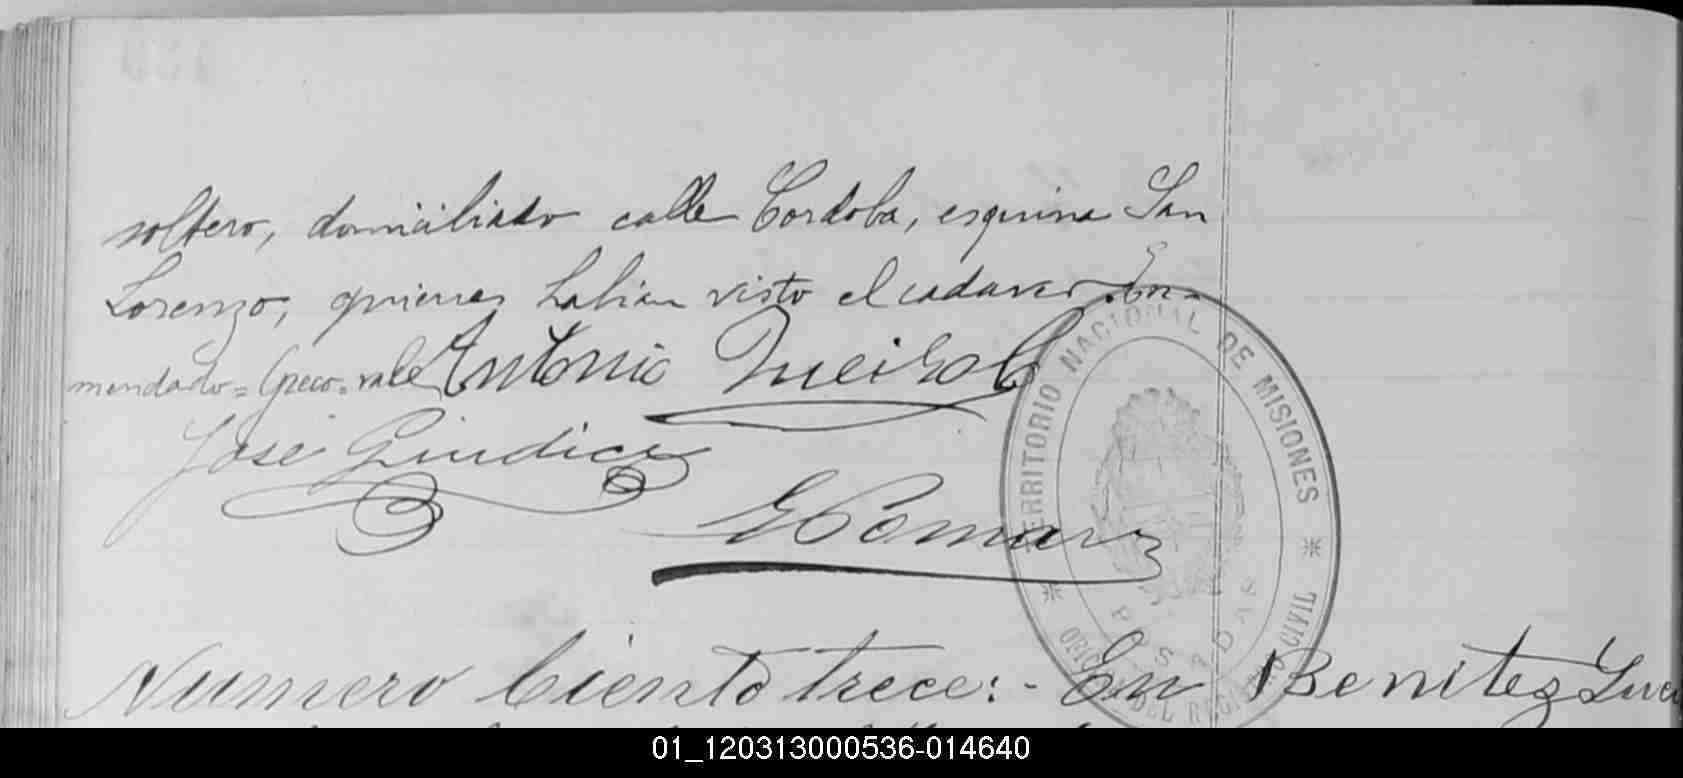 soltero, domiciliado calle Cordoba, esquina San
Lorenzo, quienes habian visto el cadaver. En-
mendado = Greco = vale Antonio Queirolo
José Giudice
E Pomar
TERRITORIO NACIONAL DE MISIONES
OFICINA DEL REGISTRO CIVIL
POSADAS
Numero Ciento trece: - En Benitez
01_120313000536-014640